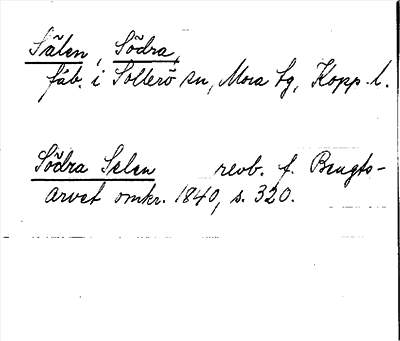 Sälen, Södra,
fäb. i Sollerö sn, Mora tg, Kopp. l.
Södra Selen revb. f. Bengts-
arvet omkr. 1840, s. 320.